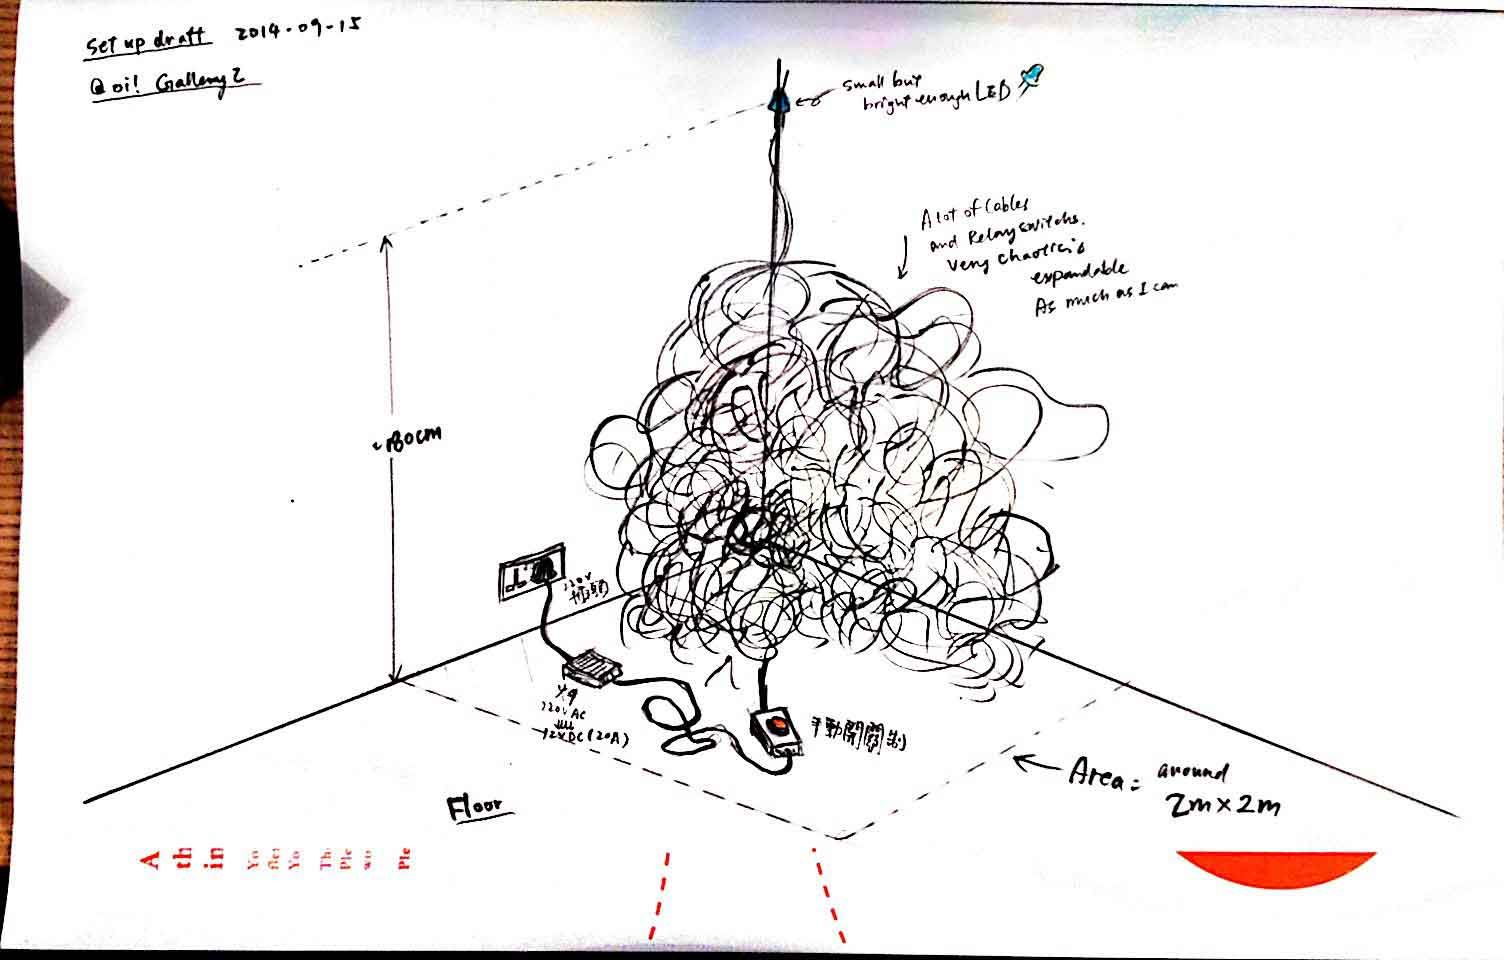 Set up draft 2014-09-15
@ oi! Gallery 2
small but
bright enough LED
A lot of Cables
and Relay switchs.
Very chaotic &
expandable
As much as I can
220V
220V AC
12V DC (20A)
手動開關制
Floor
Area: around
2m×2m
A
th
in
Yo
Yo
Th
Ple
Ple